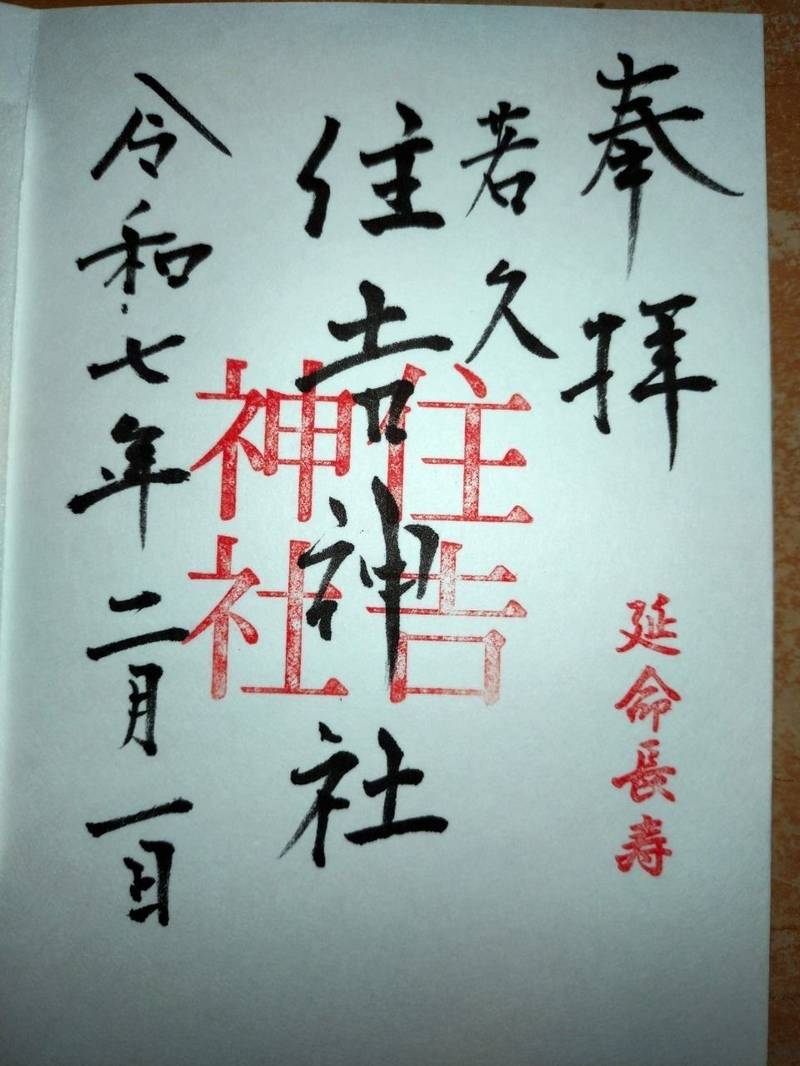 奉拝
延命長寿
若久
住吉神社
住吉
神社
令和七年二月一日